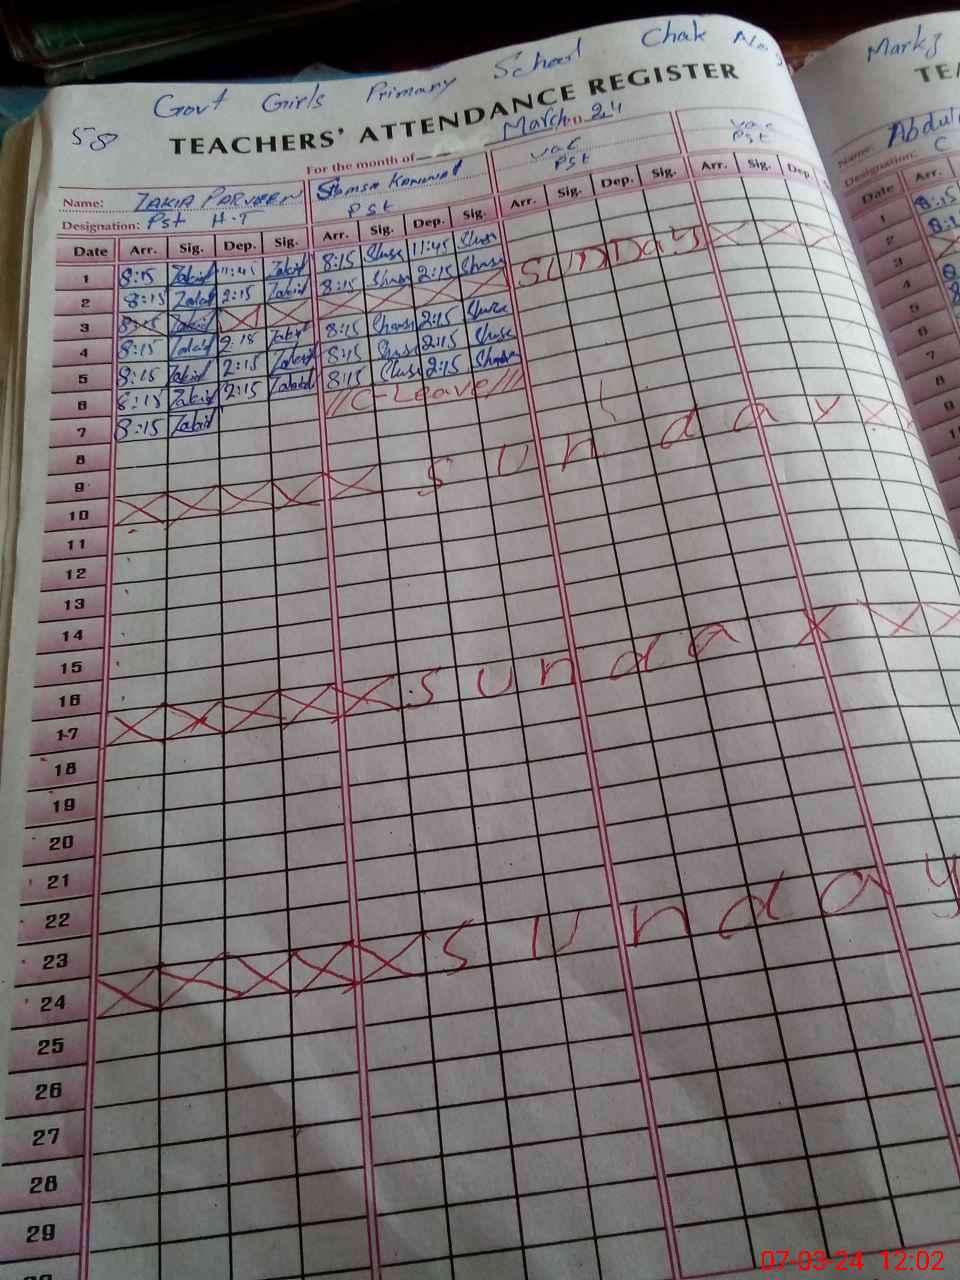 Govt Girls Primary School Chak No
58
TEACHERS' ATTENDANCE REGISTER
For the month of March 24
Name: ZAKIA PARVEEN
Designation: Pst H.T Pst
vac Pst
vac Pst
Date Arr. Sig. Dep. Sig. Arr. Sig. Dep. Sig. Arr. Sig. Dep. Sig. Arr. Sig. Dep.
1 8:15 Zakia 11:45 Zakia 8:15 11:45
2 8:15 Zakia 2:15 Zakia 8:15 2:15
3 SUNDAY
4 8:15 Zakia 2:15 Zakia 8:15 2:15
5 8:15 Zakia 2:15 Zakia 8:15 2:15
6 8:15 Zakia 2:15 Zakia 8:15 2:15
7 8:15 Zakia C-Leave
8
9
10 Sunday
11
12
13
14
15
16
17 Sunday
18
19
20
21
22
23
24 Sunday
25
26
27
28
29
Name: Abdul
Designation: C
Date Arr.
1 8:15
2
3
4
5
6
7
8
9
07-03-24 12:02